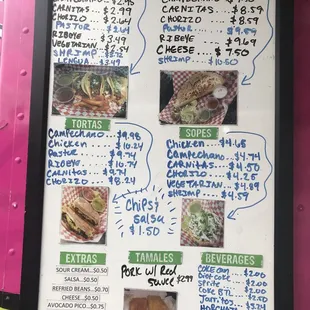 CARNITAS... $2.99
CHORIZO... $2.64
PASTOR... $2.64
RIBEYE $3.49
VEGETARIAN $2.54
SHRIMP
LENGUA $3.49
CARNITAS... $8.59
CHORIZO... $8.59
Pastor
RIBEYE... $9.69
CHEESE... $7.50
SHRIMP... $10.50
TORTAS
Campechano... $9.98
Chicken.... $10.24
Pastor.... $9.74
RIBEYE... $10.74
CARNITAS... $9.74
CHORIZO... $8.24
SOPES
Chicken... $4.68
Campechano... $4.74
CARNITAS... $4.50
CHORIZO... $4.25
VEGETARIAN... $4.89
SHRIMP... $4.59
Chips/
salsa
$1.50
EXTRAS
SOUR CREAM...$0.50
SALSA...$0.50
REFRIED BEANS...$0.70
CHEESE...$0.50
AVOCADO PICO...$0.75
TAMALES
Pork w/ Red
sauce $2.99
BEVERAGES
COKE CAN $2.00
Diet coke $2.00
Sprite $2.00
COKE BTL $2.50
Jarritos $2.50
HORCHATA